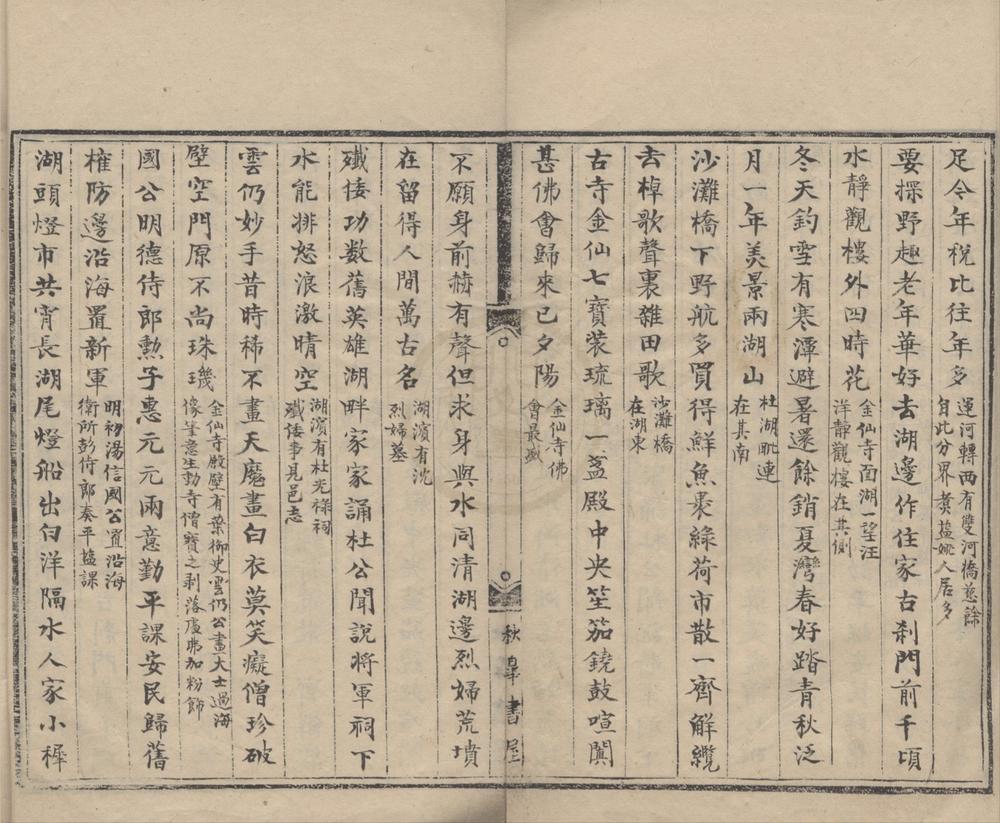 足今年税比往年多運河轉西有雙河橋慈餘
自此分界煑鹽姚人居多
要探野趣老年華好去湖邊作住家古刹門前千頃
水靜觀樓外四時花金仙寺面湖一望汪
洋靜觀樓在其側
冬天釣雪有寒潭避暑還餘銷夏灣春好踏青秋泛
月一年美景兩湖山杜湖毗連
在其南
沙灘橋下野航多買得鮮魚裹綠荷市散一齊解纜
去棹歌聲裏雜田歌沙灘橋
在湖東
古寺金仙七寶裝琉璃一盞殿中央笙笳鐃鼓喧闐
甚佛會歸來已夕陽金仙寺佛
會最盛
秋皐書屋
不願身前赫有聲但求身與水同清湖邊烈婦荒墳
在留得人間萬古名湖濱有沈
烈婦墓
殲倭功數舊英雄湖畔家家誦杜公聞說將軍祠下
水能排怒浪激晴空湖濱有杜光祿祠
殲倭事見邑志
雲仍妙手昔時稀不畫天魔畫白衣莫笑癡僧珍破
壁空門原不尚珠璣金仙寺殿壁有葉御史雲仍公畫大士過海
像筆意生動寺僧寶之剥落處弗加粉飾
國公明德侍郎勲子惠元元兩意勤平課安民歸舊
榷防邊沿海置新軍明初湯信國公置沿海
衛所彭侍郎奏平鹽課
湖頭燈市共宵長湖尾燈船出白洋隔水人家小樨